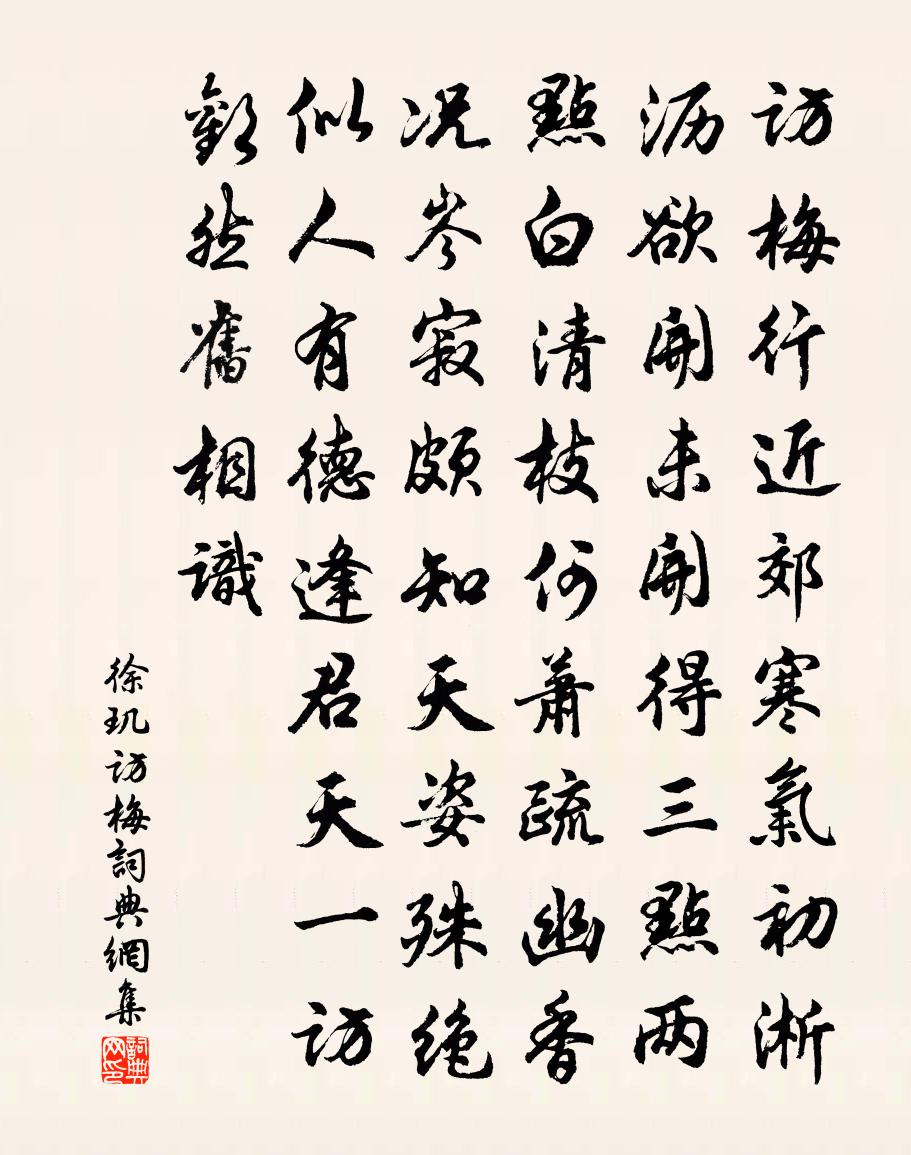 訪梅行近郊寒氣初淅
沥欲開未開得三點两
點白清枝何蕭疏幽香
况岑寂頗知天姿殊绝
似人有德逢君天一訪
歡然舊相識
徐玑訪梅詞典網集
詞典网印